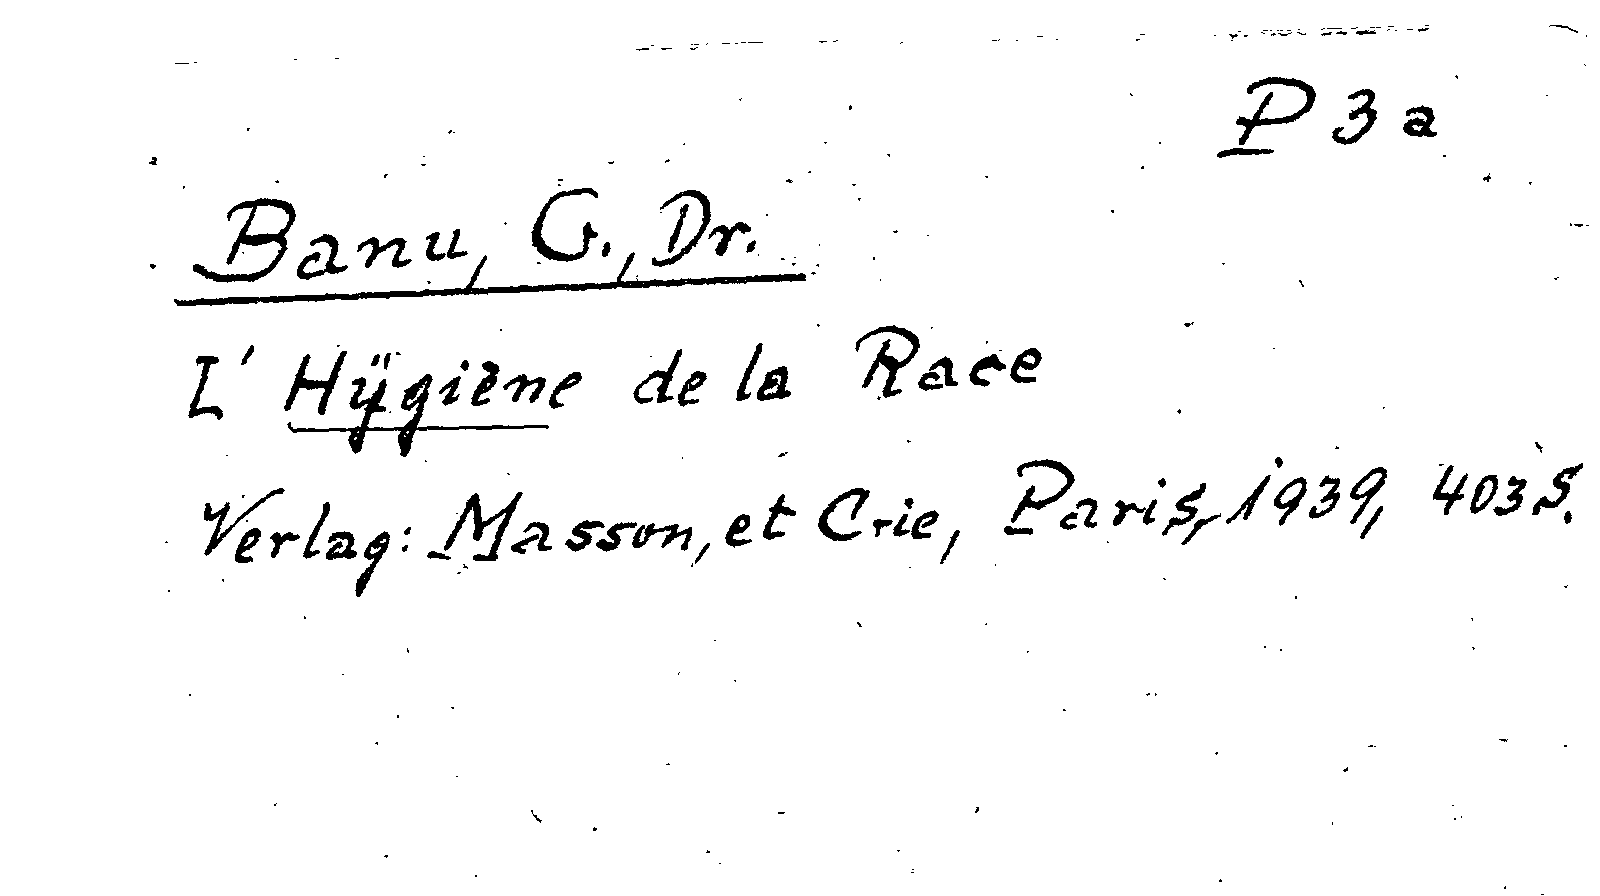 P 3 a
Banu, G., Dr.
L' Hÿgiène de la Race
Verlag: Masson, et Crie, Paris, 1939, 403 S.